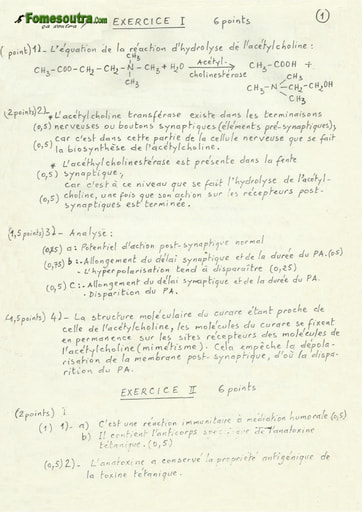 Fomesoutra.com
EXERCICE I 6 points
1
(1 point) 1)- L'équation de la réaction d'hydrolyse de l'acétylcholine:
CH3-COO-CH2-CH2-N-CH3 + H2O Acétyl-cholinestérase CH3-COOH +
CH3
CH3
CH3-N-CH2-CH2OH
(2points) 2) * L'acétylcholine transférase existe dans les terminaisons
(0,5) nerveuses ou boutons synaptiques (éléments pré-synaptiques),
car c'est dans cette partie de la cellule nerveuse que se fait
(0,5) la biosynthèse de l'acétylcholine.
* L'acéthylcholinestérase est présente dans la fente
(0,5) synaptique,
car c'est à ce niveau que se fait l'hydrolyse de l'acétyl-
(0,5) choline, une fois que son action sur les récepteurs post-
synaptiques est terminée.
(1,5 points) 3)- Analyse:
(0,25) a: Potentiel d'action post-synaptique normal
(0,75) b: - Allongement du délai synaptique et de la durée du PA. (0,5)
- L'hyperpolarisation tend à disparaître (0,25)
(0,5) C: - Allongement du délai synaptique et de la durée du PA.
- Disparition du PA.
(1,5 points) 4)- La structure moléculaire du curare étant proche de
celle de l'acétylcholine, les molécules du curare se fixent
en permanence sur les sites récepteurs des molécules de
l'acétylcholine (mimétisme). Cela empêche la dépola-
risation de la membrane post-synaptique, d'où la dispa-
rition du PA.
EXERCICE II 6 points
(2points) I
(1) 1)- a) C'est une réaction immunitaire à médiation humorale (0,5)
b) Il contient l'anticorps de l'anatoxine
tétanique. (0,5)
(0,5) 2)- L'anatoxine a conservé la propriété antigénique de
la toxine tétanique.